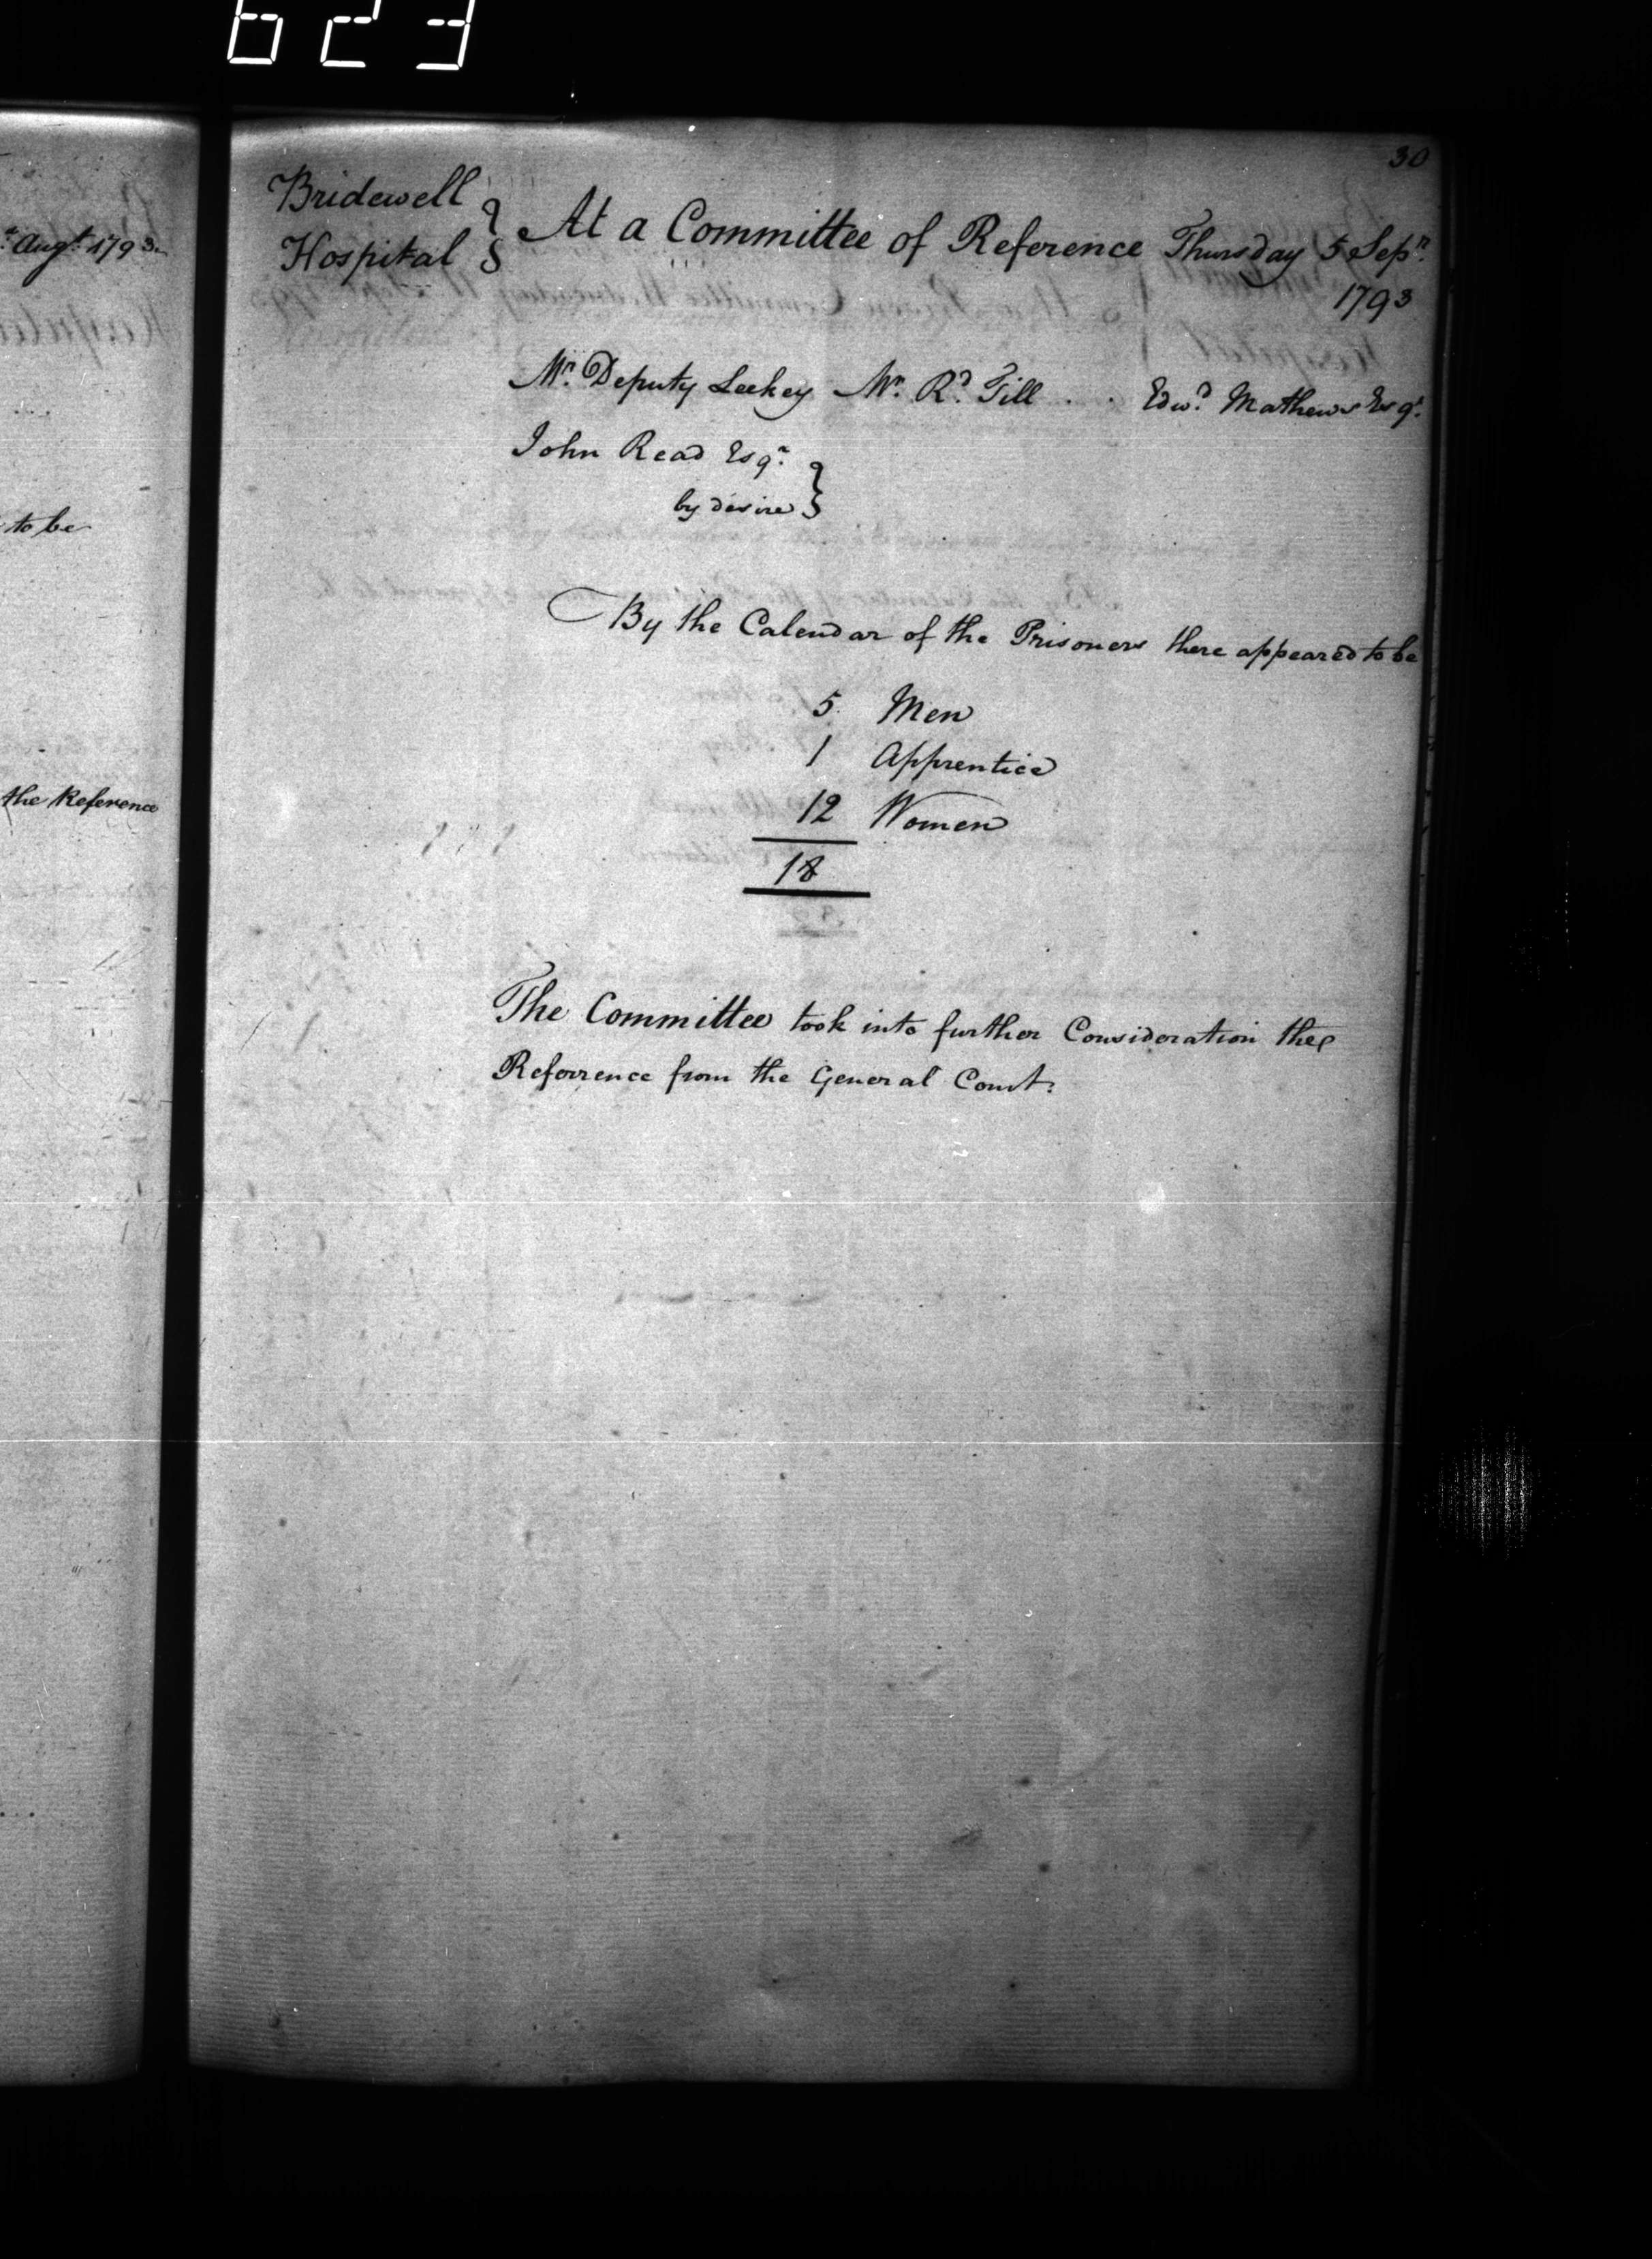 623
t Augt. 1793.
to be
the Reference
30
Bridewell
Hospital } At a Committee of Reference Thursday 5 Sepr.
1793
Mr. Deputy Leekey Mr. Rd. Till . . Edwd. Mathews Esqr.
John Read Esqr.
by desire }
By the Calendar of the Prisoners there appeared to be
5 Men
1 Apprentice
12 Women
18
The Committee took into further Consideration the
Referrence from the General Court.